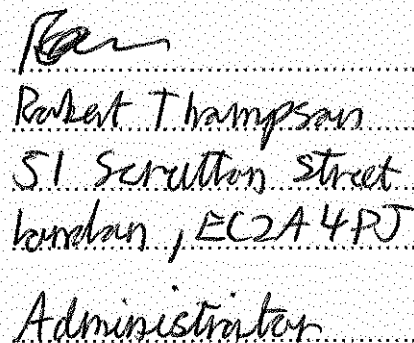 Robert Thompson
51 Scrutton Street
London, EC2A 4PJ
Administrator